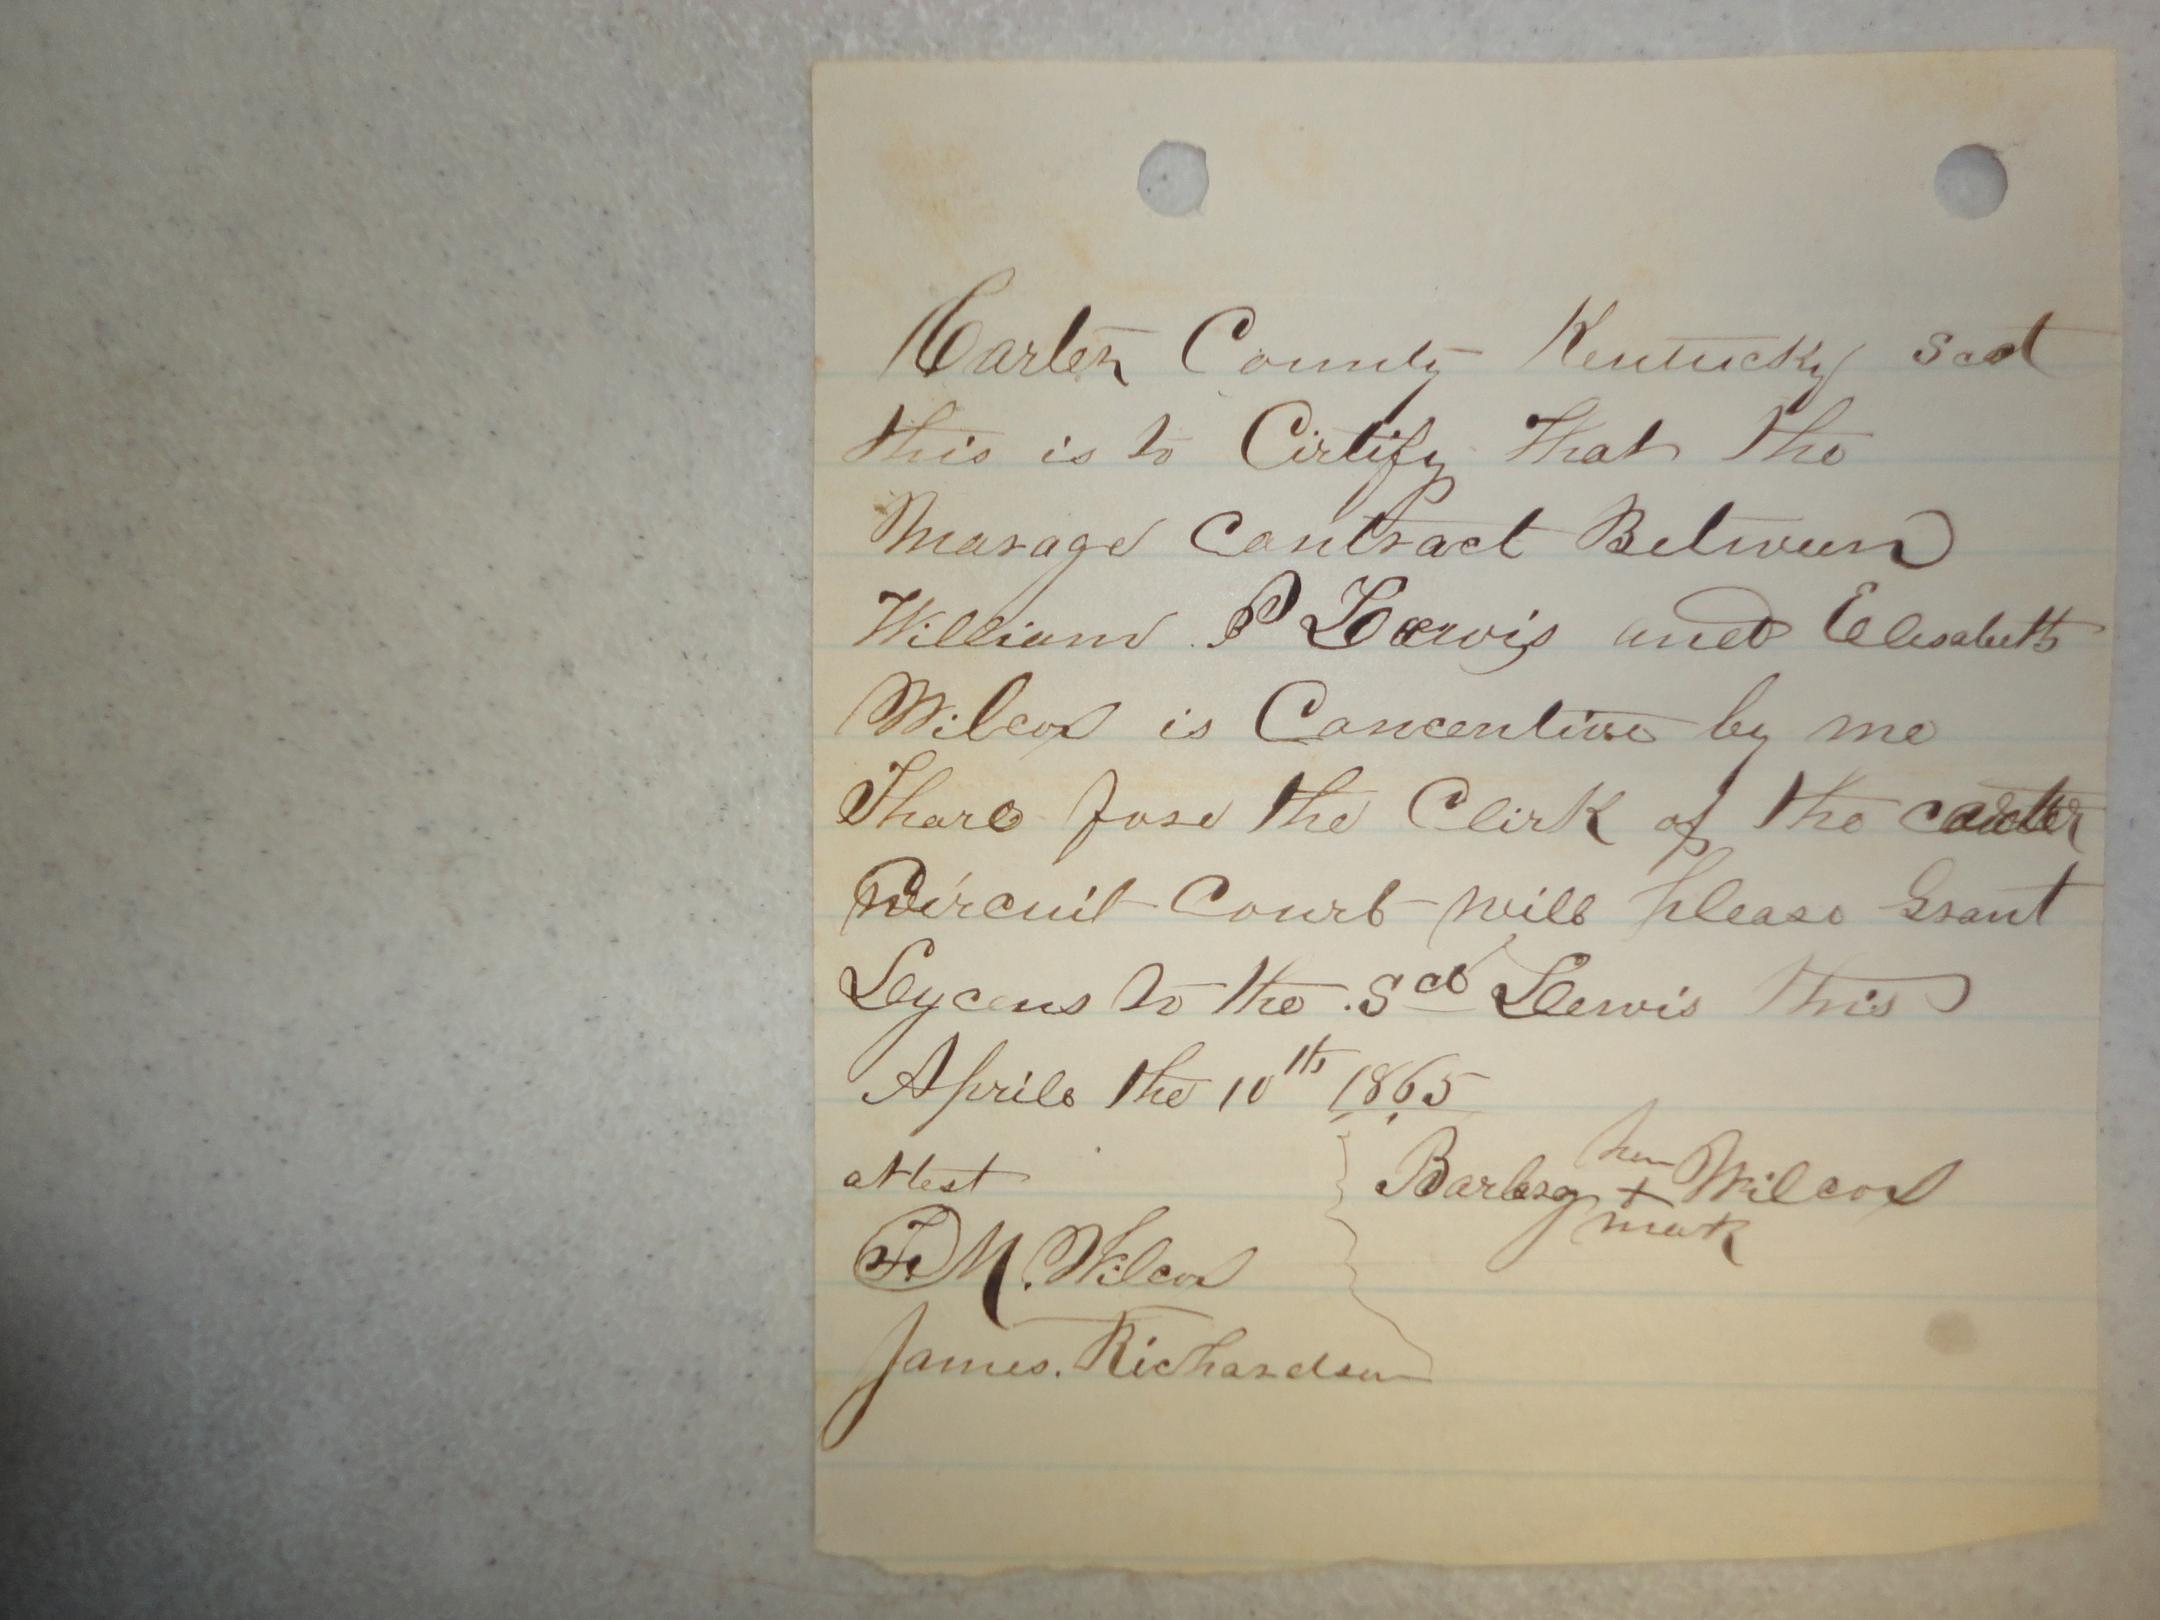 Carter County Kentucky Sect
this is to Cirtify That the
Marage Contract Between
William P Lewis and Elisabeth
Wilcox is Concentive by me
Thare fore the Clirk of the carter
Circuit Court will please Grant
Leycens to the Sd Lewis this
Aprile the 10th 1865
attest
Barbery her + mark Wilcox
F. M. Wilcox
James. Richardson